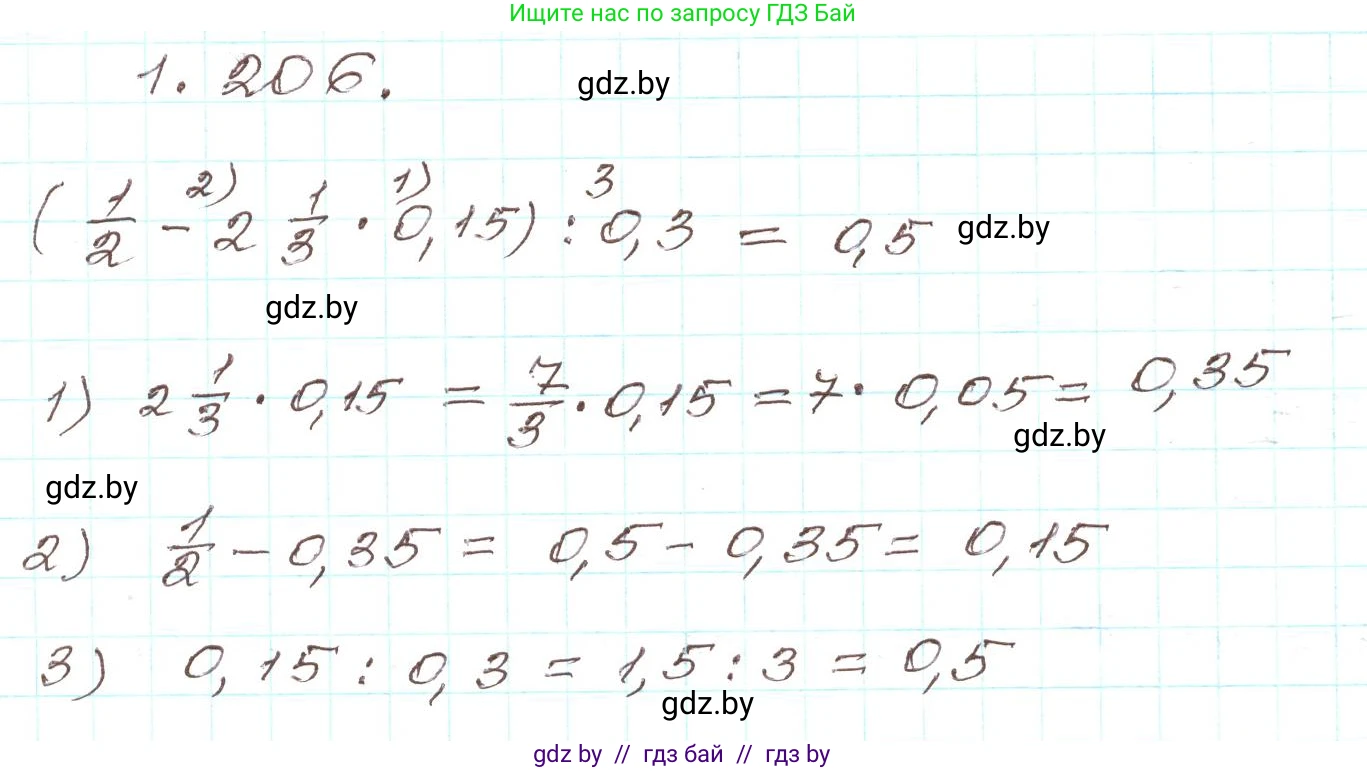 Ищите нас по запросу ГДЗ Бай
1.206.
gdz.by
2) 1) 3
(1/2 - 2 1/3 · 0,15) : 0,3 = 0,5
gdz.by
gdz.by
1) 2 1/3 · 0,15 = 7/3 · 0,15 = 7 · 0,05 = 0,35
gdz.by
gdz.by
2) 1/2 - 0,35 = 0,5 - 0,35 = 0,15
3) 0,15 : 0,3 = 1,5 : 3 = 0,5
gdz.by
gdz by // гдз бай // гдз by